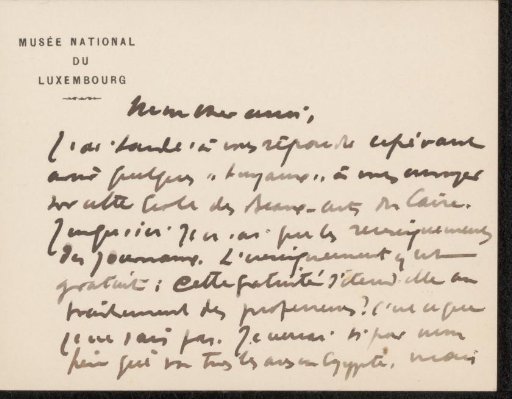 MUSÉE NATIONAL
DU
LUXEMBOURG
Mon cher ami,
J'ai tardé à vous répondre espérant
avoir quelques "tuyaux" à vous envoyer
sur cette Ecole des Beaux-arts du Caire.
Jusqu'ici je n'ai que les renseignements
des journaux. L'enseignement y est
gratuit : cette gratuité s'étend elle au
traitement des professeurs? c'est ce que
je ne sais pas. Je verrai si par mon
qui va tous les ans en Egypte, mais